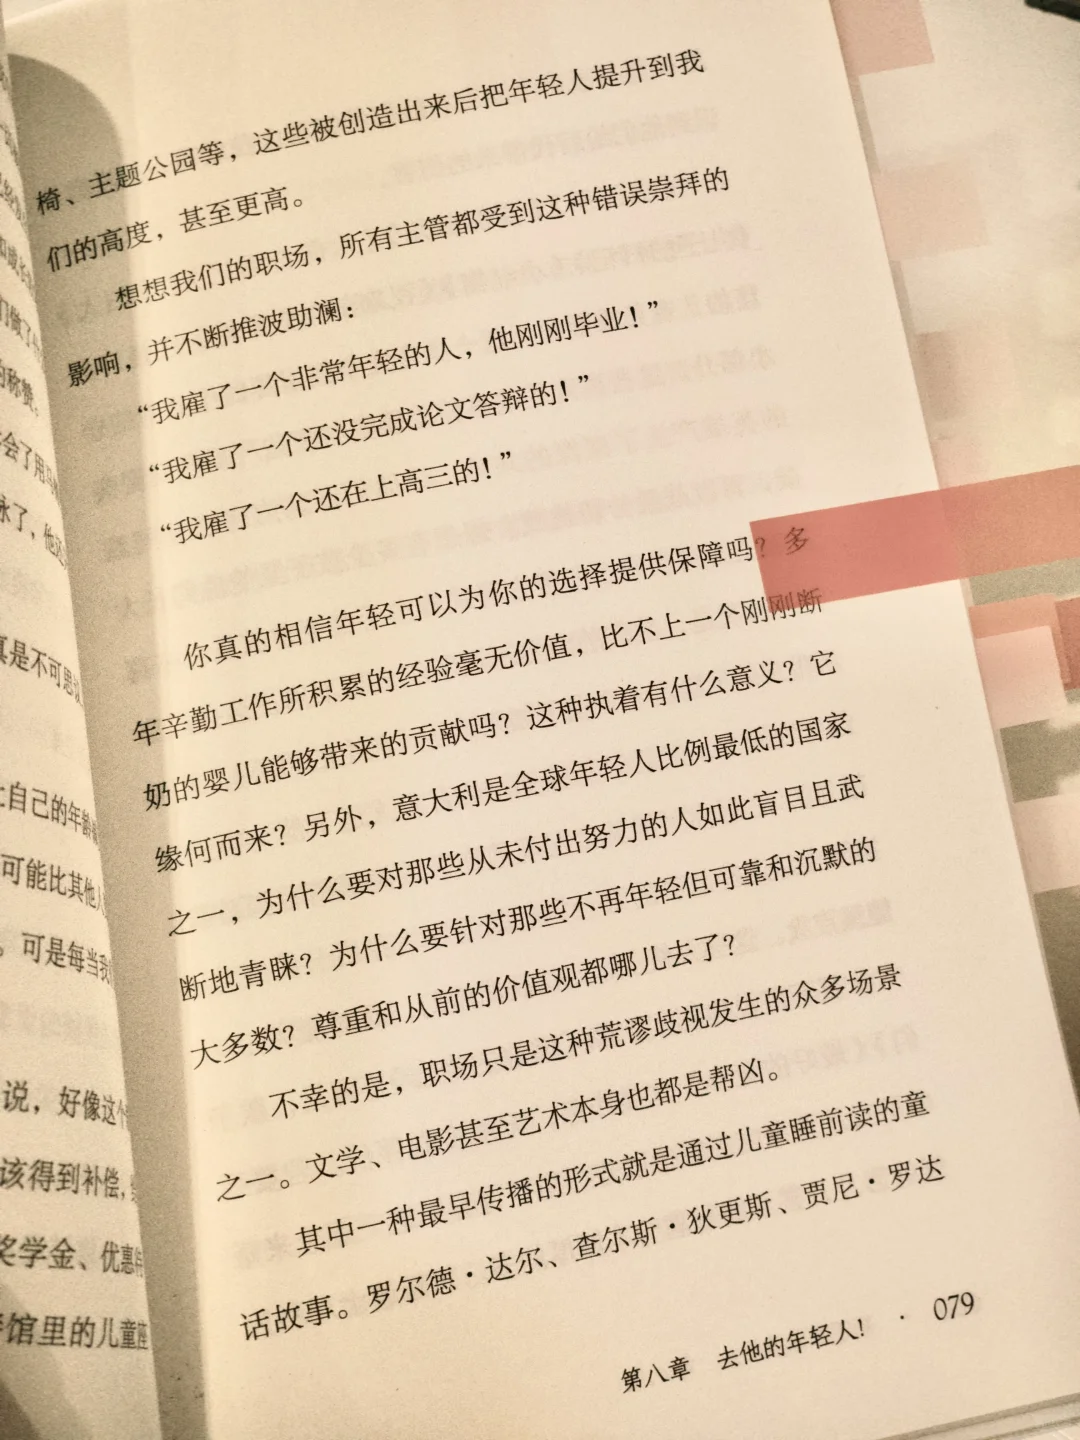 椅、主题公园等，这些被创造出来后把年轻人提升到我
们的高度，甚至更高。
想想我们的职场，所有主管都受到这种错误崇拜的
影响，并不断推波助澜：
“我雇了一个非常年轻的人，他刚刚毕业！”
“我雇了一个还没完成论文答辩的！”
“我雇了一个还在上高三的！”
你真的相信年轻可以为你的选择提供保障吗？多
年辛勤工作所积累的经验毫无价值，比不上一个刚刚断
奶的婴儿能够带来的贡献吗？这种执着有什么意义？它
缘何而来？另外，意大利是全球年轻人比例最低的国家
之一，为什么要对那些从未付出努力的人如此盲目且武
断地青睐？为什么要针对那些不再年轻但可靠和沉默的
大多数？尊重和从前的价值观都哪儿去了？
不幸的是，职场只是这种荒谬歧视发生的众多场景
之一。文学、电影甚至艺术本身也都是帮凶。
其中一种最早传播的形式就是通过儿童睡前读的童
话故事。罗尔德·达尔、查尔斯·狄更斯、贾尼·罗达
第八章 去他的年轻人！ · 079
真是不可思
上自己的年龄
可能比其他
。可是每当我
说，好像这个
该得到补偿，
奖学金、优惠
馆里的儿童座